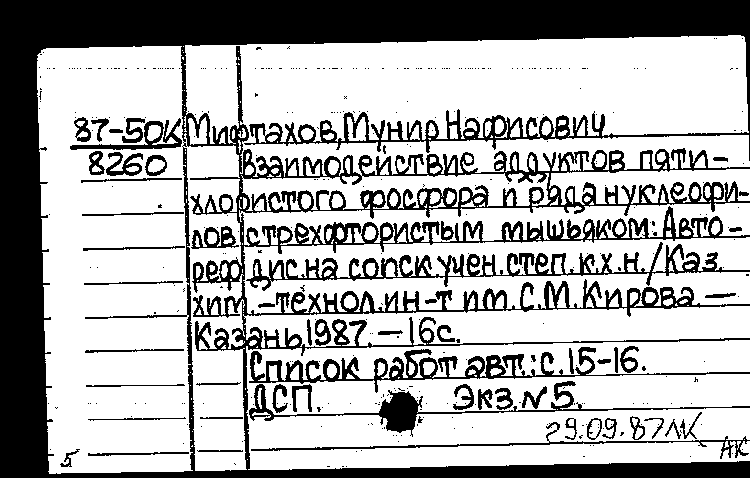 87-50К Мифтахов, Мунир Нафисович.
8260 Взаимодействие аддуктов пяти-
хлористого фосфора и ряда нуклеофи-
лов с трехфтористым мышьяком: Авто-
реф дис. на соиск. учен. степ. к.х.н. / Каз.
хим.-технол. ин-т им. С.М. Кирова. —
Казань, 1987. — 16с.
Список работ авт.: с. 15-16.
ДСП. Экз. № 5.
29.09.87
5 АК